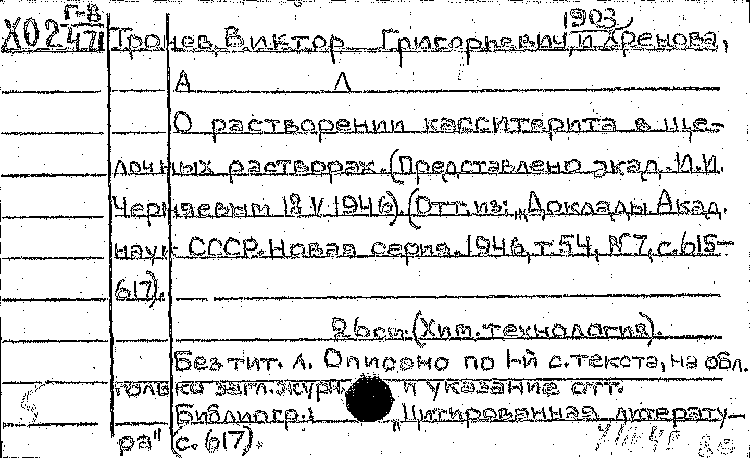 Г-В 1903
Х02 471 Тронев, Виктор Григорьевич, и Хренова,
А Л
О растворении касситерита в ще-
лочных растворах. (Представлено акад. И.И.
Черняевым 18 V 1946). (Отт. из: „Доклады Акад.
наук СССР. Новая серия. 1946, т. 54, №7, с. 615-
617).
26 см. (Хим. технология).
Без тит. л. Описано по 1-й с. текста, на обл.
только загл. журн. и указание отт.
Библиогр.: „Цитированная литерату-
ра" (с. 617).